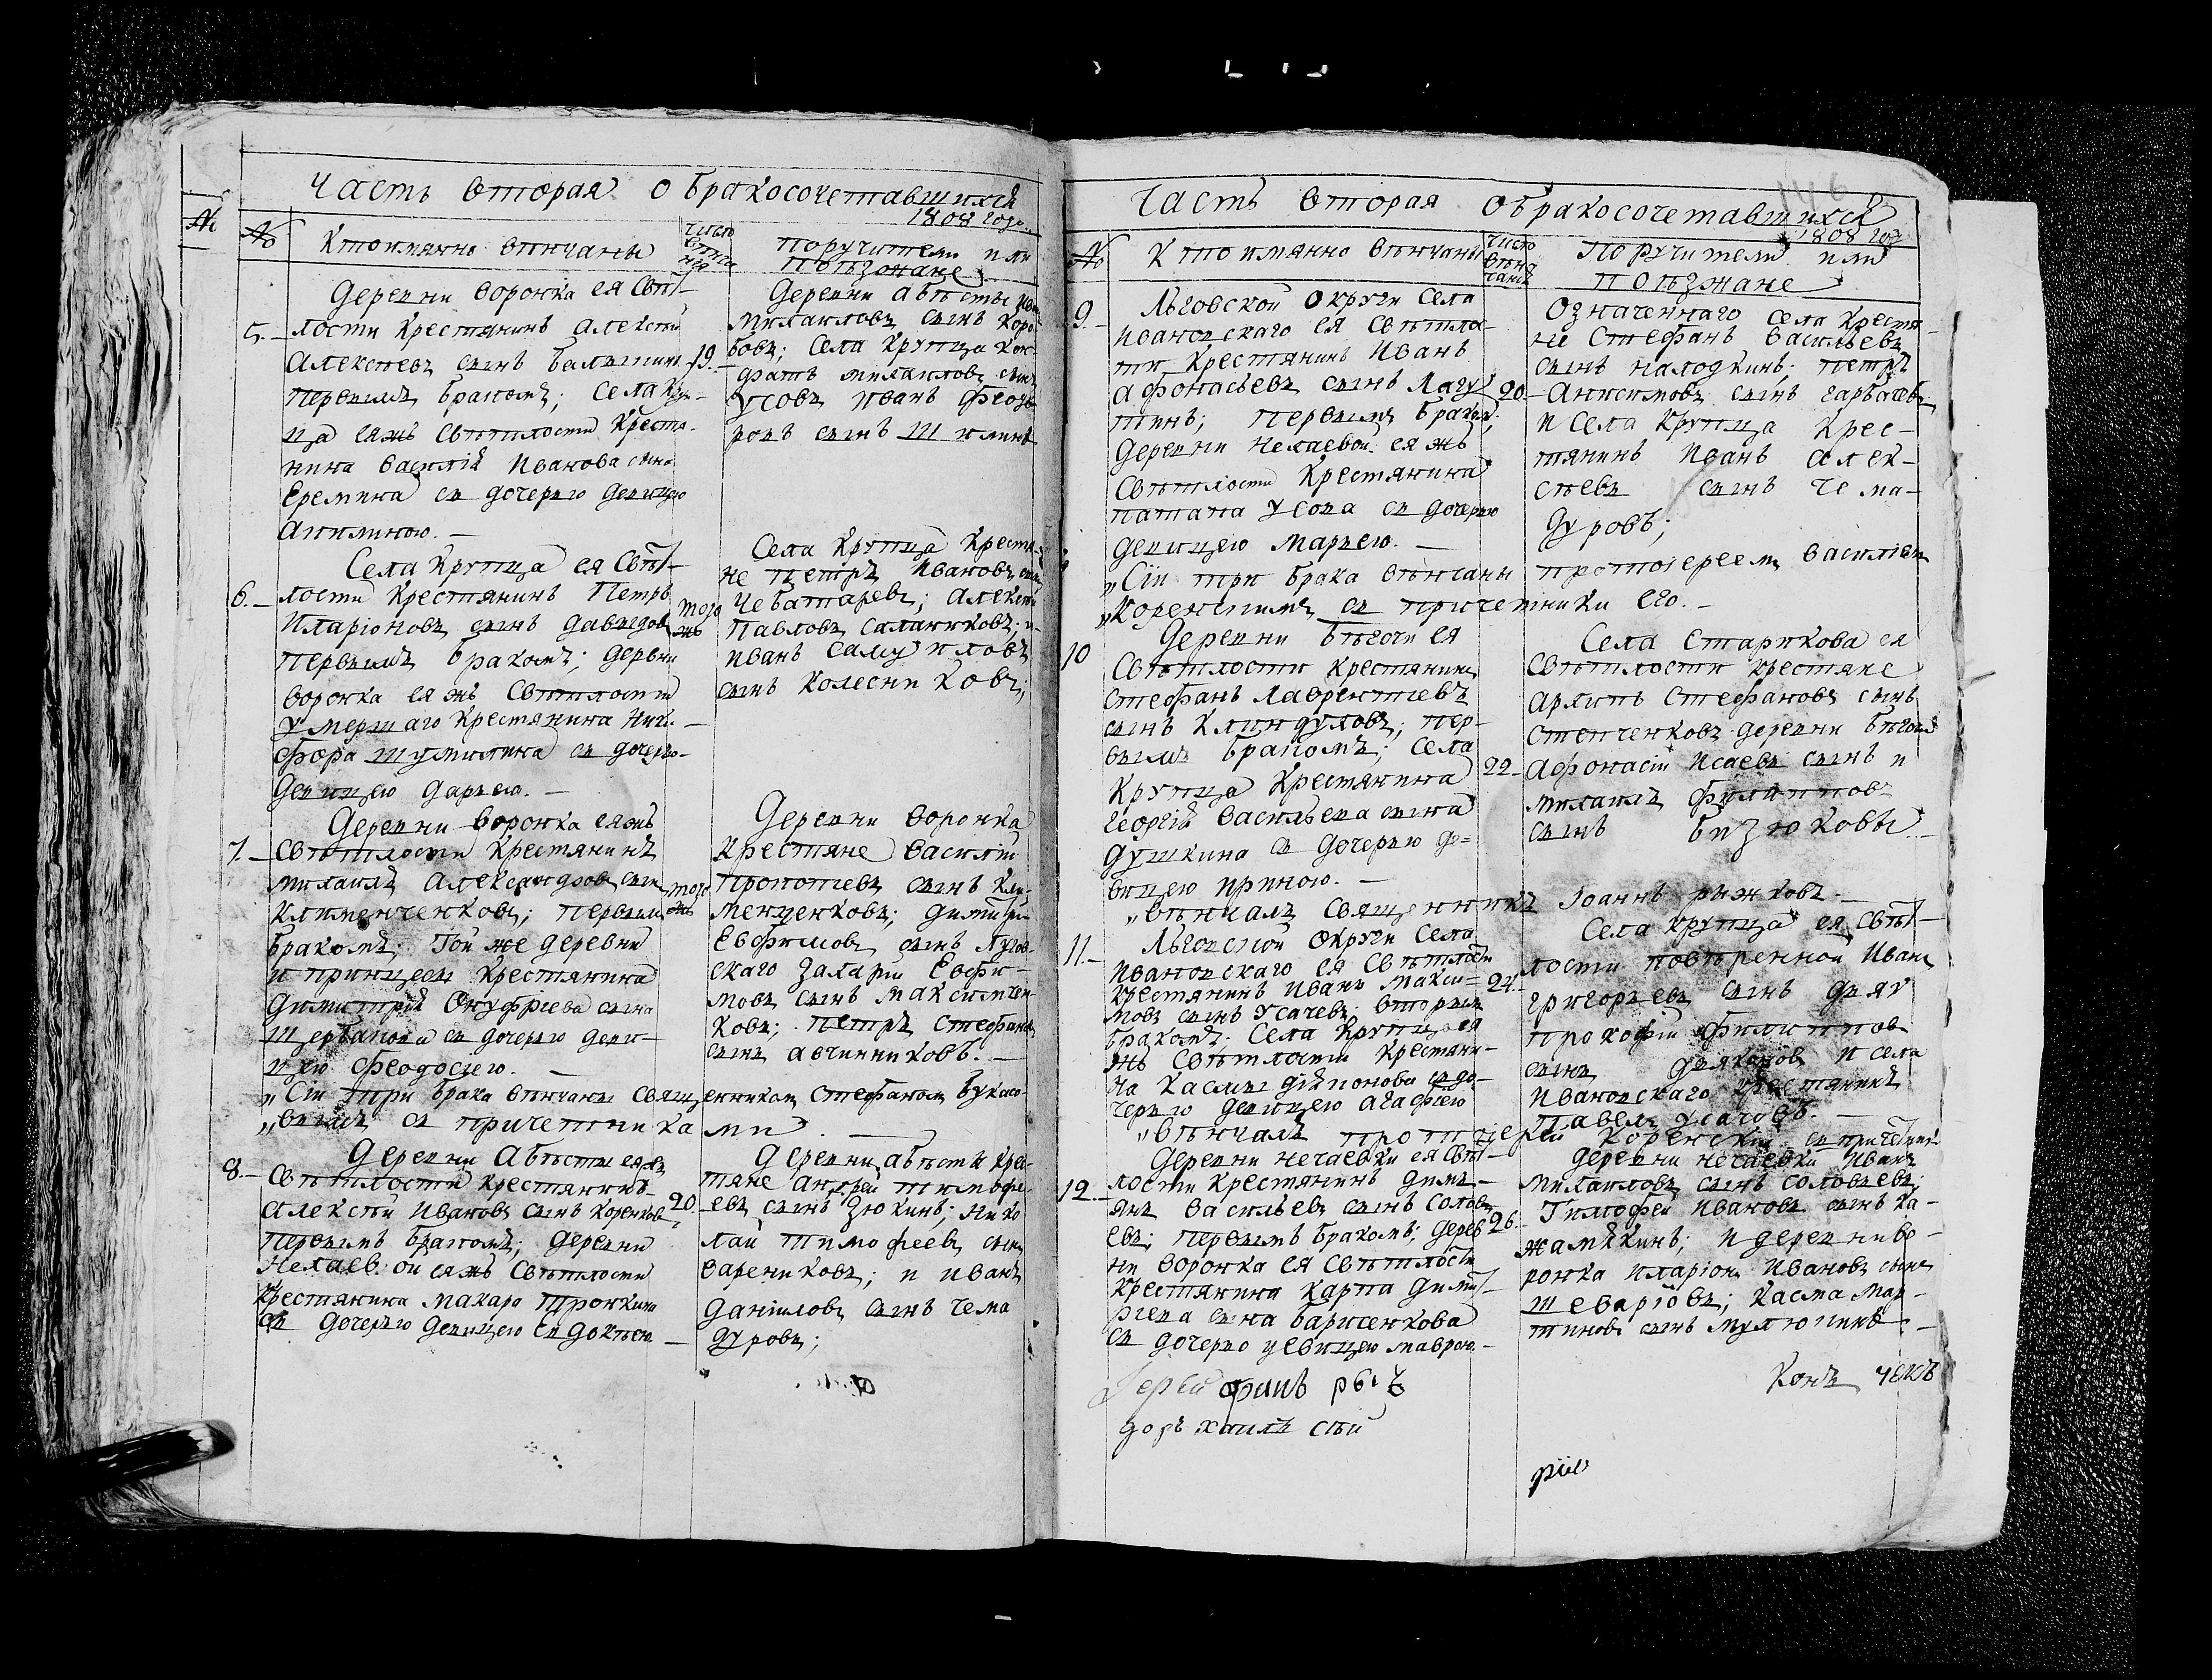 Часть вторая о бракосочетавшихся
1808 года
№
№
Кто имянно венчаны
число
Поручители или
поѣзжане
Деревни Воронка ея Свѣт-
5.- лости крестянинъ Алексѣй
Алексѣевъ сынъ
первымъ бракомъ; Села Круп-
ца еяжъ Свѣтлости крестя-
нина Василія Иванова сына
Еремина съ дочерью девицею
Акилиною. -
19.-
Деревни Абѣсты
Михаиловъ сынъ
бовъ; Села Крупца
фатъ Михаиловъ сынъ
Усовъ Иванъ Федо
ровъ сынъ Шилинъ
Села Крупца ея Свѣт-
6.- лости крестянинъ Петръ
Иларіоновъ сынъ Давыдов
первымъ бракомъ; деревни
Воронка ея жъ Свѣтлости
умершаго крестянина Ники-
фора Шумилина съ дочерью-
девицею Дарьею. -
того
жъ
Села Крупца крестя-
не Петръ Ивановъ сынъ
Чеботаревъ; Алексѣй
Павловъ Саланиковъ; и-
Иванъ Самуиловъ
сынъ Колесниковъ;
Деревни Воронка еяжъ
7.- Свѣтлости крестянинъ
Михаилъ Александровъ сынъ
Клименченковъ; первымъ
бракомъ; Той же деревни
и принцессы крестянина
Димитрія Онуфріева сына
Щербакова съ дочерью деви-
цею Феодосіею. -
того
жъ
Деревни Воронка
крестяне Василій
Прокопіевъ сынъ Кли-
менченковъ; Димитрій
Евфимовъ сынъ Лугов-
скаго Захарій Евфи-
мовъ сынъ Максимчен-
ковъ; Петръ Стефанов
сынъ Авчинниковъ. -
„Сіи три брака вѣнчаны священникомъ Стефаномъ
„вымъ съ причетниками. -
Деревни Абѣсты ея
8.- Свѣтлости крестянинъ
Алексѣй Ивановъ сынъ Коренков
первымъ бракомъ; деревни
Нехаевой еяжъ Свѣтлости
крестянина Макара Тронкина
съ дочерью девицею Евдокѣею
20.
Деревни Абѣсты крес-
тяне Андрей Тимофе-
евъ сынъ Зюкинъ; Нико
лай Тимофеевъ сынъ
Варениковъ; и Иванъ
Даніиловъ сынъ Чема
дуровъ;
Часть вторая о бракосочетавшихся
1808 год
№
Кто имянно вѣнчаны
число
вѣнч
Поручители или
поѣзжане
9.- Льговской округи Села
Ивановскаго ея Свѣтло-
сти крестянинъ Иванъ
Афонасьевъ сынъ Лагу
тинъ; первымъ бракомъ;
деревни Нехаевой ея жъ
Свѣтлости крестянина
Патапа Усова съ дочерью
девицею Марьею. -
20.-
Означеннаго Села крестя-
не Стефанъ Васильевъ
сынъ Налодкинъ; Петръ
Анисимовъ сынъ Гарбачевъ
и Села Крупца крес-
тянинъ Иванъ Алек-
сѣевъ сынъ Чема-
дуровъ;
„Сіи три брака вѣнчаны протоіереемъ Василіемъ
„Коренскимъ съ причетники его. -
10 Деревни Бѣгочи ея
Свѣтлости крестянинъ
Стефанъ Лаврентіевъ
сынъ Клиндуховъ; пер-
вымъ бракомъ; Села
Крупца крестянина
Георгія Васильева сына
Душкина съ дочерью де-
вицею Ириною. -
22.-
Села Старикова ея
Свѣтлости крестяне
Архипъ Стефановъ сынъ
Степченковъ деревни Бѣгочи
Афонасій Исаевъ сынъ и
Михаилъ Филипповъ
сынъ Бизюковы. -
„Вѣнчалъ Священникъ Іоаннъ Рыжковъ. -
11.- Льговской округи Села
Ивановскаго ея Свѣтлости
крестянинъ Иванъ Макси-
мовъ сынъ Усачевъ; вторымъ
бракомъ. Села Крупца ея
жъ Свѣтлости крестяни-
на Касмы съ до-
черью девицею Агафіею
24.-
Села Крупца ея Свѣт-
лости повѣренной Иванъ
Григорьевъ сынъ
Прокофій Филипповъ
сынъ Дьяконовъ и села
Ивановскаго крестянинъ
Павелъ Усачовъ. -
„Вѣнчалъ протоіерей Коренскій съ причетники
Деревни Нечаевки ея Свѣт-
12.- лости крестянинъ Демь-
янъ Васильевъ сынъ Соловь
евъ; первымъ бракомъ; дерев
ни Воронка ея Свѣтлости
крестянина Карпа Димит-
ріева сына Барисенкова
съ дочерью девицею Маврою. -
26.
Деревни Нечаевки Иванъ
Михаиловъ сынъ Соловьевъ;
Тимофей Ивановъ сынъ Ка-
жамякинъ; и деревни Во-
ронка Иларіонъ Ивановъ сынъ
Шеваріовъ; Касма Мар-
тиновъ сынъ Мулюкинъ. -